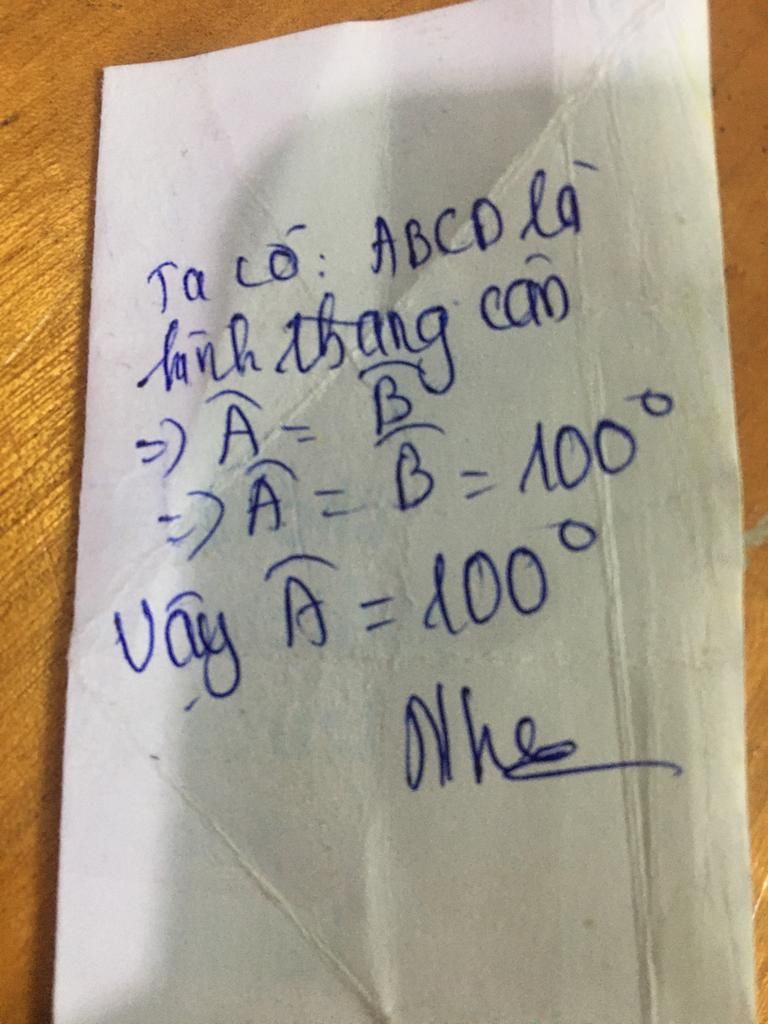 Ta có: ABCD là
hình thang cân
=> Â = B̂
=> Â = B̂ = 100°
Vậy Â = 100°